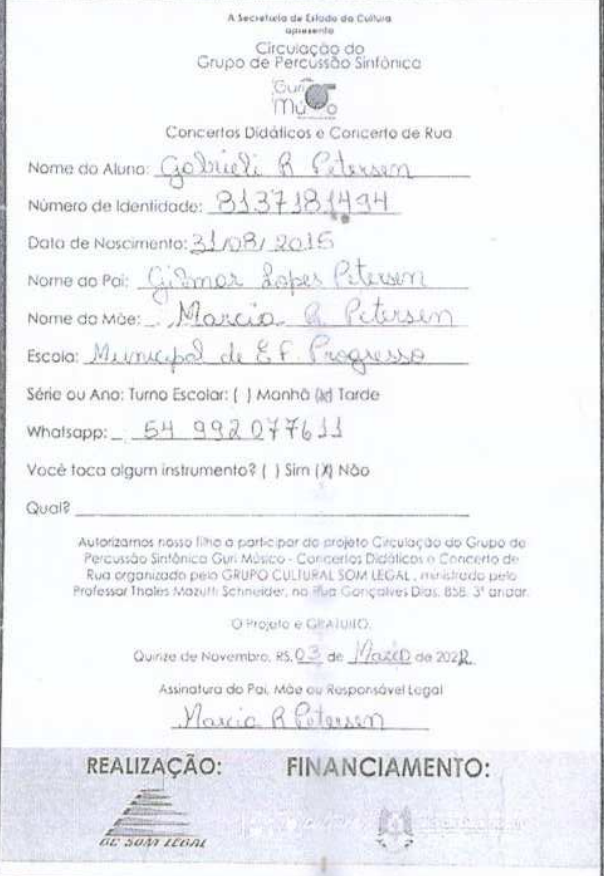 A Secretaria de Estado da Cultura
apresenta
Circulação do
Grupo de Percussão Sinfônica
Guri
Mú o
Concertos Didáticos e Concerto de Rua
Nome do Aluno: Gabrieli R Petersen
Número de Identidade: 8137181494
Data de Nascimento: 31/08/2015
Nome do Pai: Gilmar Lopes Petersen
Nome da Mãe: Marcia R Petersen
Escola: Municipal de E F. Progresso
Série ou Ano: Turno Escolar: ( ) Manhã (X) Tarde
Whatsapp: 54 992077611
Você toca algum instrumento? ( ) Sim (X) Não
Qual?
Autorizamos nosso filho a participar do projeto Circulação do Grupo de
Percussão Sinfônica Guri Músico - Concertos Didáticos e Concerto de
Rua organizado pelo GRUPO CULTURAL SOM LEGAL , ministrado pelo
Professor Thales Mazutti Schneider, na Rua Gonçalves Dias, 858, 3° andar.
O Projeto é GRATUITO.
Quinze de Novembro, RS, 03 de Março de 2022
Assinatura do Pai, Mãe ou Responsável Legal
Marcia R Petersen
REALIZAÇÃO: FINANCIAMENTO:
GC SOM LEGAL